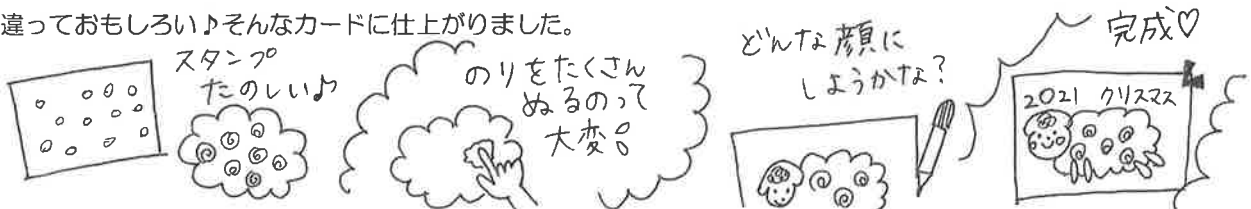 違っておもしろい♪そんなカードに仕上がりました。
スタンプ
たのしい♪
のりをたくさん
ぬるのって
大変!
どんな顔に
しようかな?
完成♡
2021 クリスマス